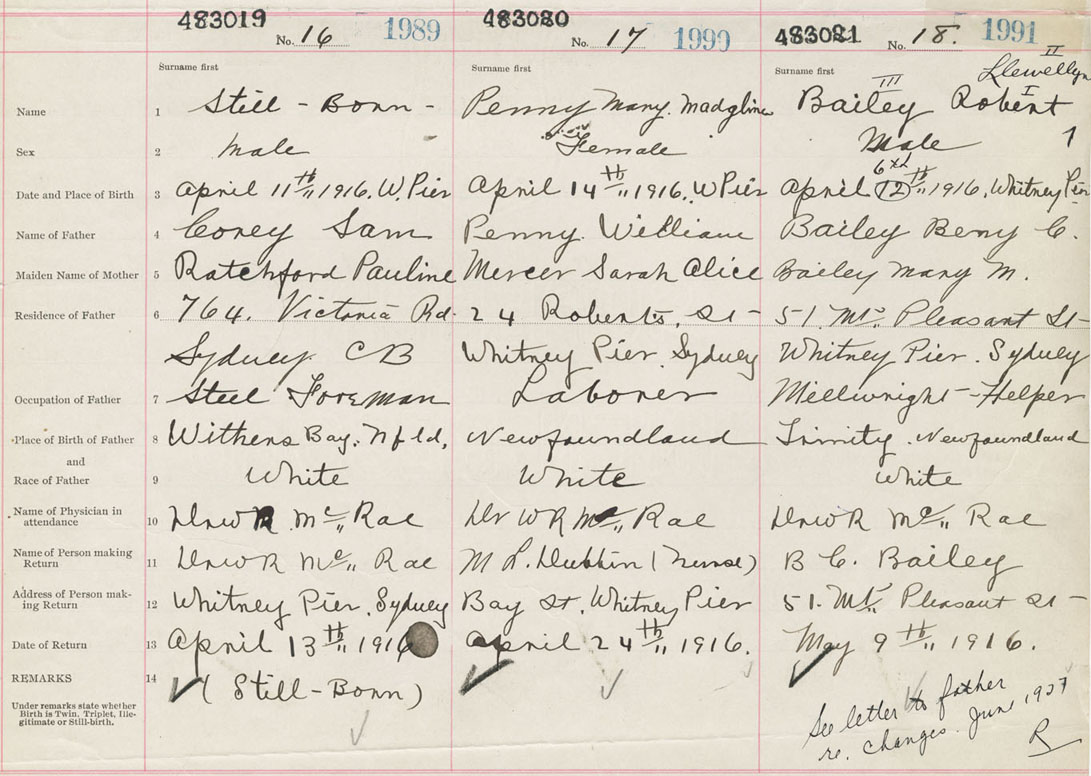 483019 483080 483081
No. 16 1989 No. 17 1990 No. 18. 1991
Surname first Surname first Surname first II Llewellyn
III I
Name 1 Still-Bonn- Penny Mary. Madgline Bailey Robert
Sex 2 Male Female Male 1
6th
Date and Place of Birth 3 April 11th 1916. W. Pier April 14th 1916. W Pier April 12th 1916, Whitney Pier
Name of Father 4 Corey Sam Penny. William Bailey Beny C.
Maiden Name of Mother 5 Ratchford Pauline Mercer Sarah Alice Bailey Mary M.
Residence of Father 6 764. Victoria Rd. 24 Roberts. St- 51. Mt. Pleasant St-
Sydney. CB Whitney Pier. Sydney Whitney Pier. Sydney
Occupation of Father 7 Steel Foreman Laborer Millwright-Helper
Place of Birth of Father 8 Withens Bay. Nfld, Newfoundland Trinity. Newfoundland
and
Race of Father 9 White White White
Name of Physician in
attendance 10 Dr W R Mc Rae Dr W R Mc Rae Dr W R Mc Rae
Name of Person making
Return 11 Dr W R Mc Rae M L. Dubbin (Nurse) B C. Bailey
Address of Person mak-
ing Return 12 Whitney Pier. Sydney Bay St, Whitney Pier 51. Mt. Pleasant St-
Date of Return 13 April 13th 1916 April 24th 1916. May 9th 1916.
REMARKS 14 (Still-Bonn)
Under remarks state whether
Birth is Twin, Triplet, Ille-
gitimate or Still-birth.
See letter to father
re. changes. June 1937
R